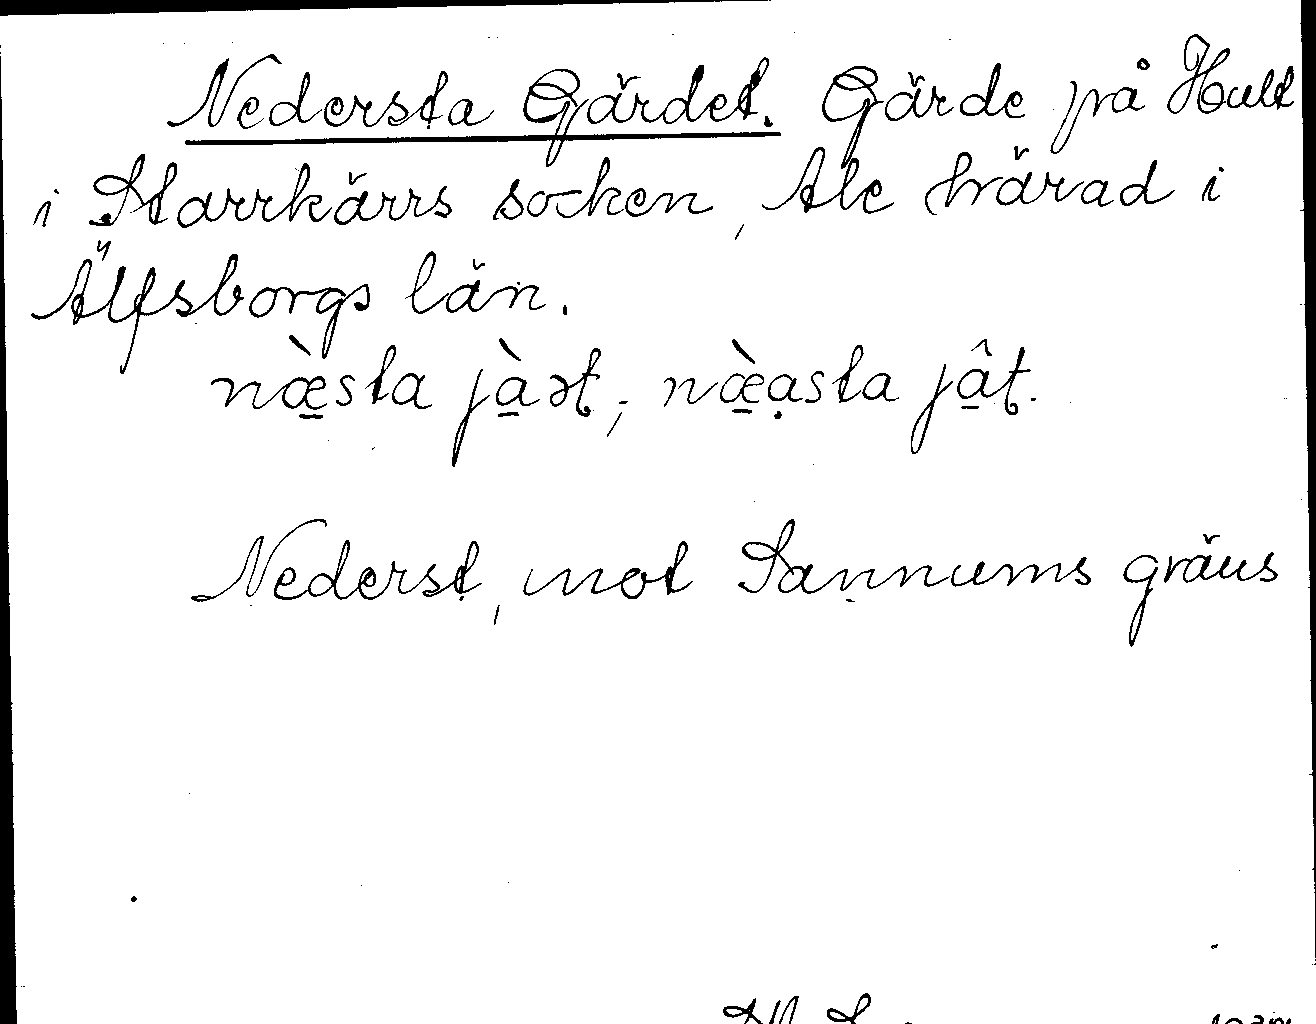 Nedersta Gärdet. Gärde på Hult
i Starrkärrs socken, Ale härad i
Älfsborgs län.
næ̀sta jàət; næ̀ạsta jât.
Nederst, mot Sannums gräns